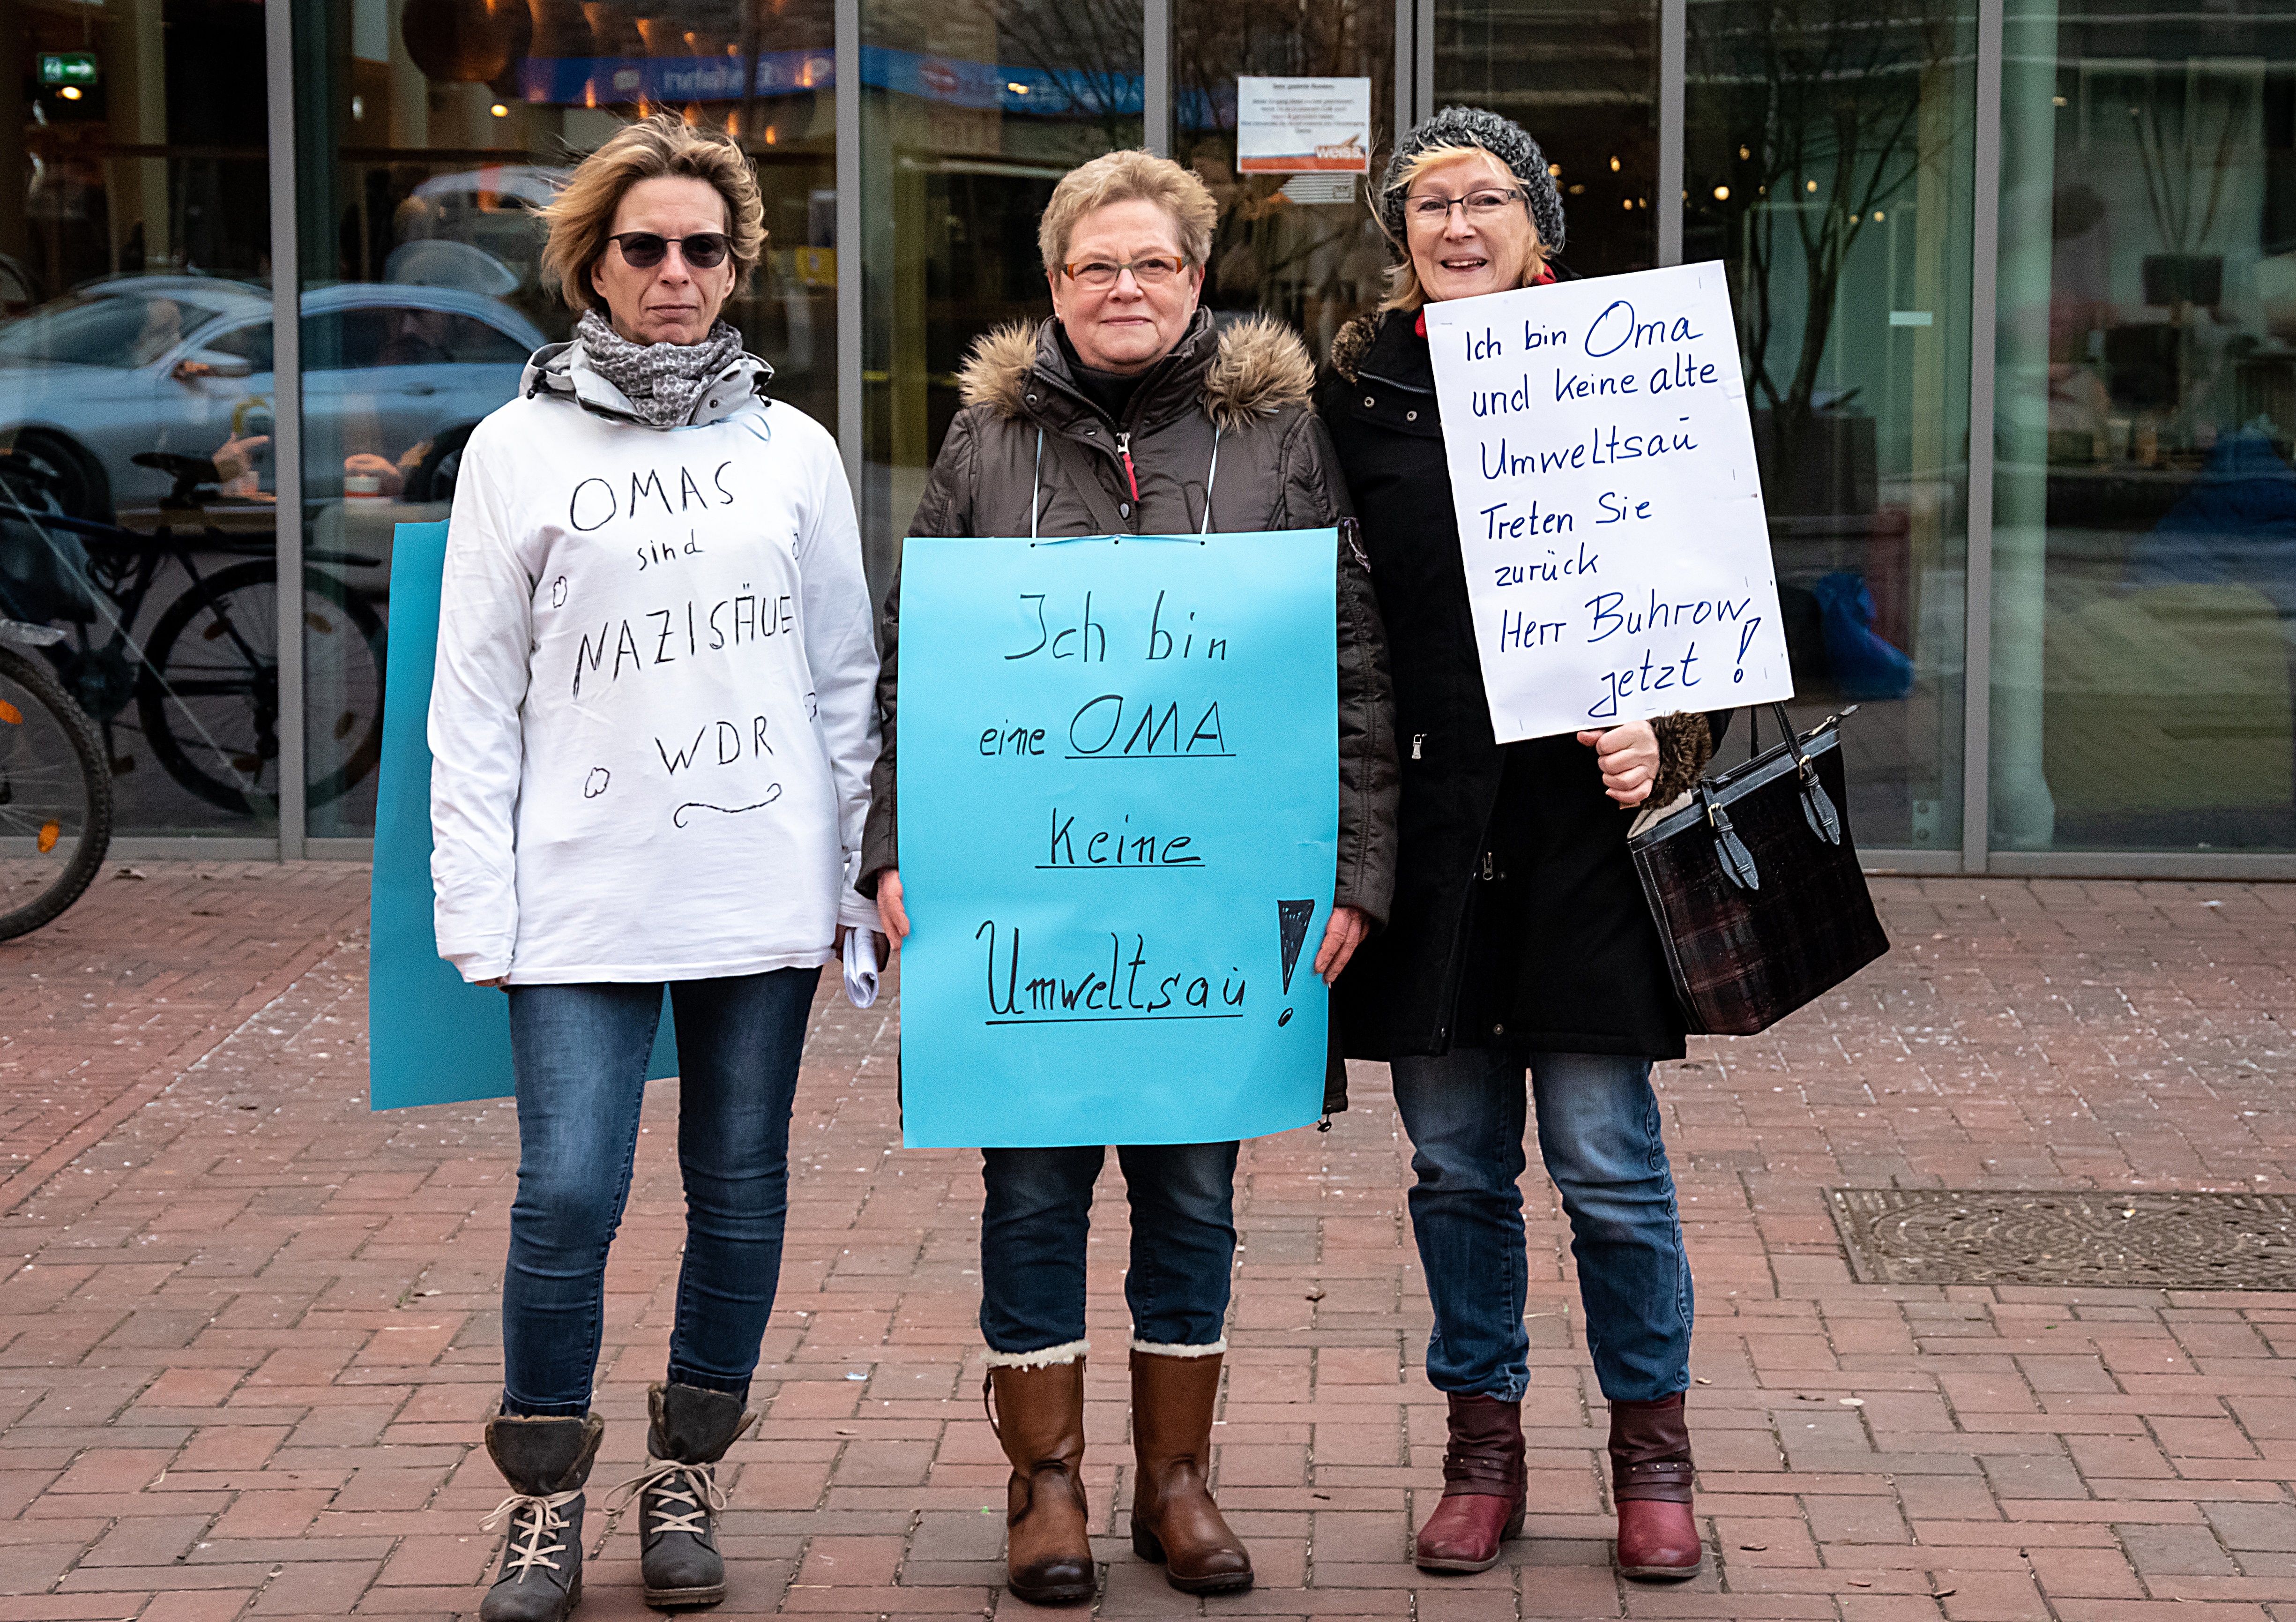 OMAS
sind
NAZISÄUE
WDR
Ich bin
eine OMA
Keine
Umweltsau !
Ich bin Oma
und keine alte
Umweltsau
Treten Sie
zurück
Herr Buhrow,
jetzt !
weiss